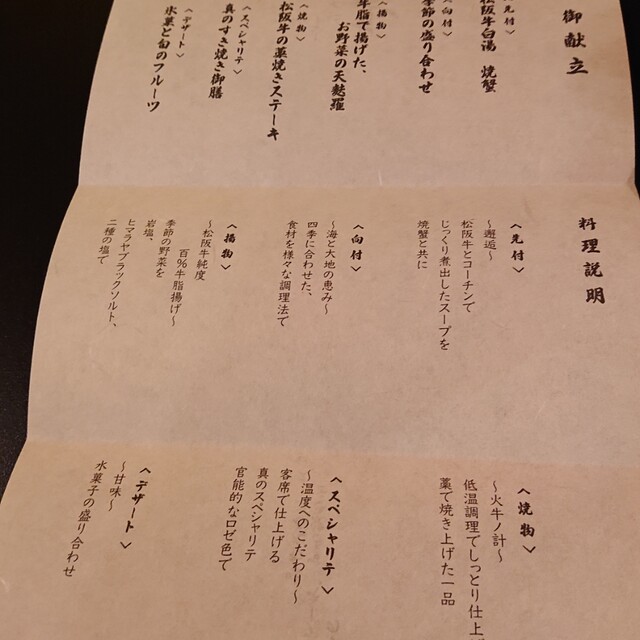 御献立
〈先付〉
松阪牛白湯　焼蟹
〈向付〉
季節の盛り合わせ
〈揚物〉
牛脂で揚げた、
お野菜の天麩羅
〈焼物〉
松阪牛の藁焼きステーキ
〈スペシャリテ〉
真のすき焼き御膳
〈デザート〉
氷菓と旬のフルーツ
料理説明
〈先付〉
～邂逅～
松阪牛とコーチンで
じっくり煮出したスープを
焼蟹と共に
〈向付〉
～海と大地の恵み～
四季に合わせた、
食材を様々な調理法で
〈揚物〉
～松阪牛純度
百％牛脂揚げ～
季節の野菜を
岩塩、
ヒマラヤブラックソルト、
二種の塩で
〈焼物〉
～火牛ノ計～
低温調理でしっとり仕上
藁で焼き上げた一品
〈スペシャリテ〉
～温度へのこだわり～
客席で仕上げる
真のスペシャリテ
官能的なロゼ色で
〈デザート〉
～甘味～
氷菓子の盛り合わせ